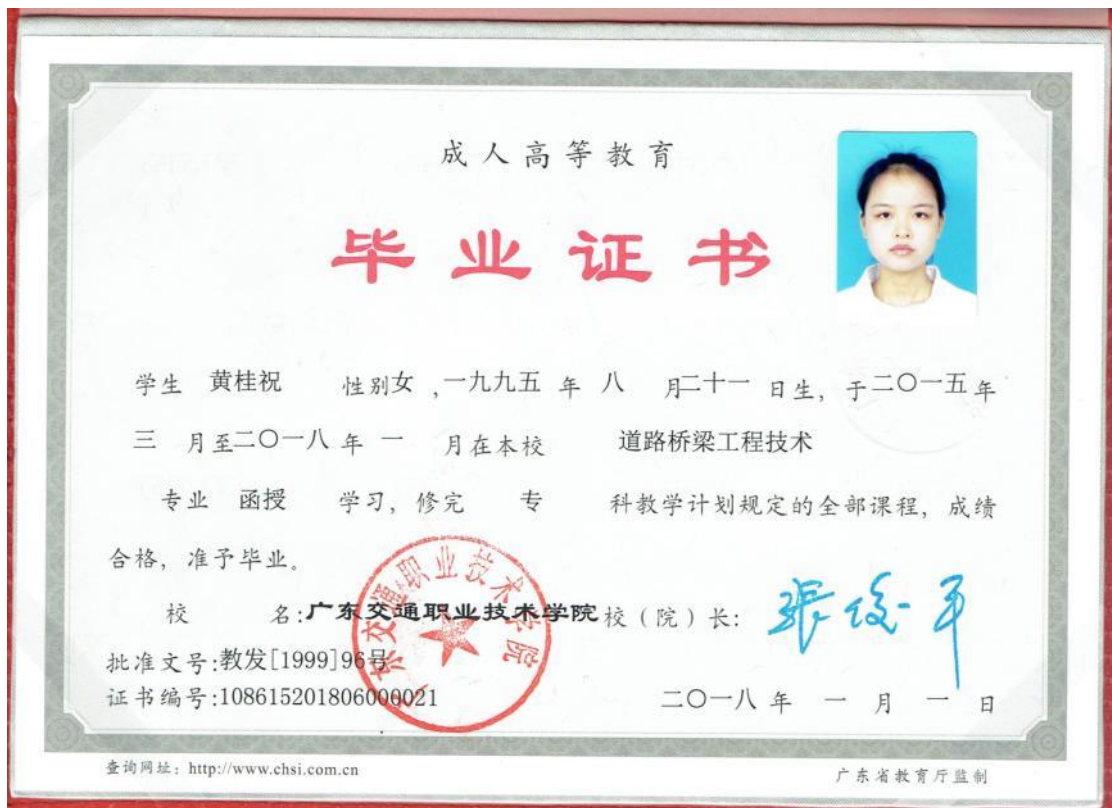 成人高等教育
毕业证书
学生 黄桂祝 性别女，一九九五 年 八 月二十一 日生，于二〇一五年
三 月至二〇一八 年 一 月在本校 道路桥梁工程技术
专业 函授 学习，修完 专 科教学计划规定的全部课程，成绩
合格，准予毕业。
校 名:广东交通职业技术学院 校（院）长: 张俊平
广东交通职业技术学院
批准文号:教发[1999]96号
证书编号:108615201806000021
二〇一八 年 一 月 一 日
查询网址：http://www.chsi.com.cn
广东省教育厅监制